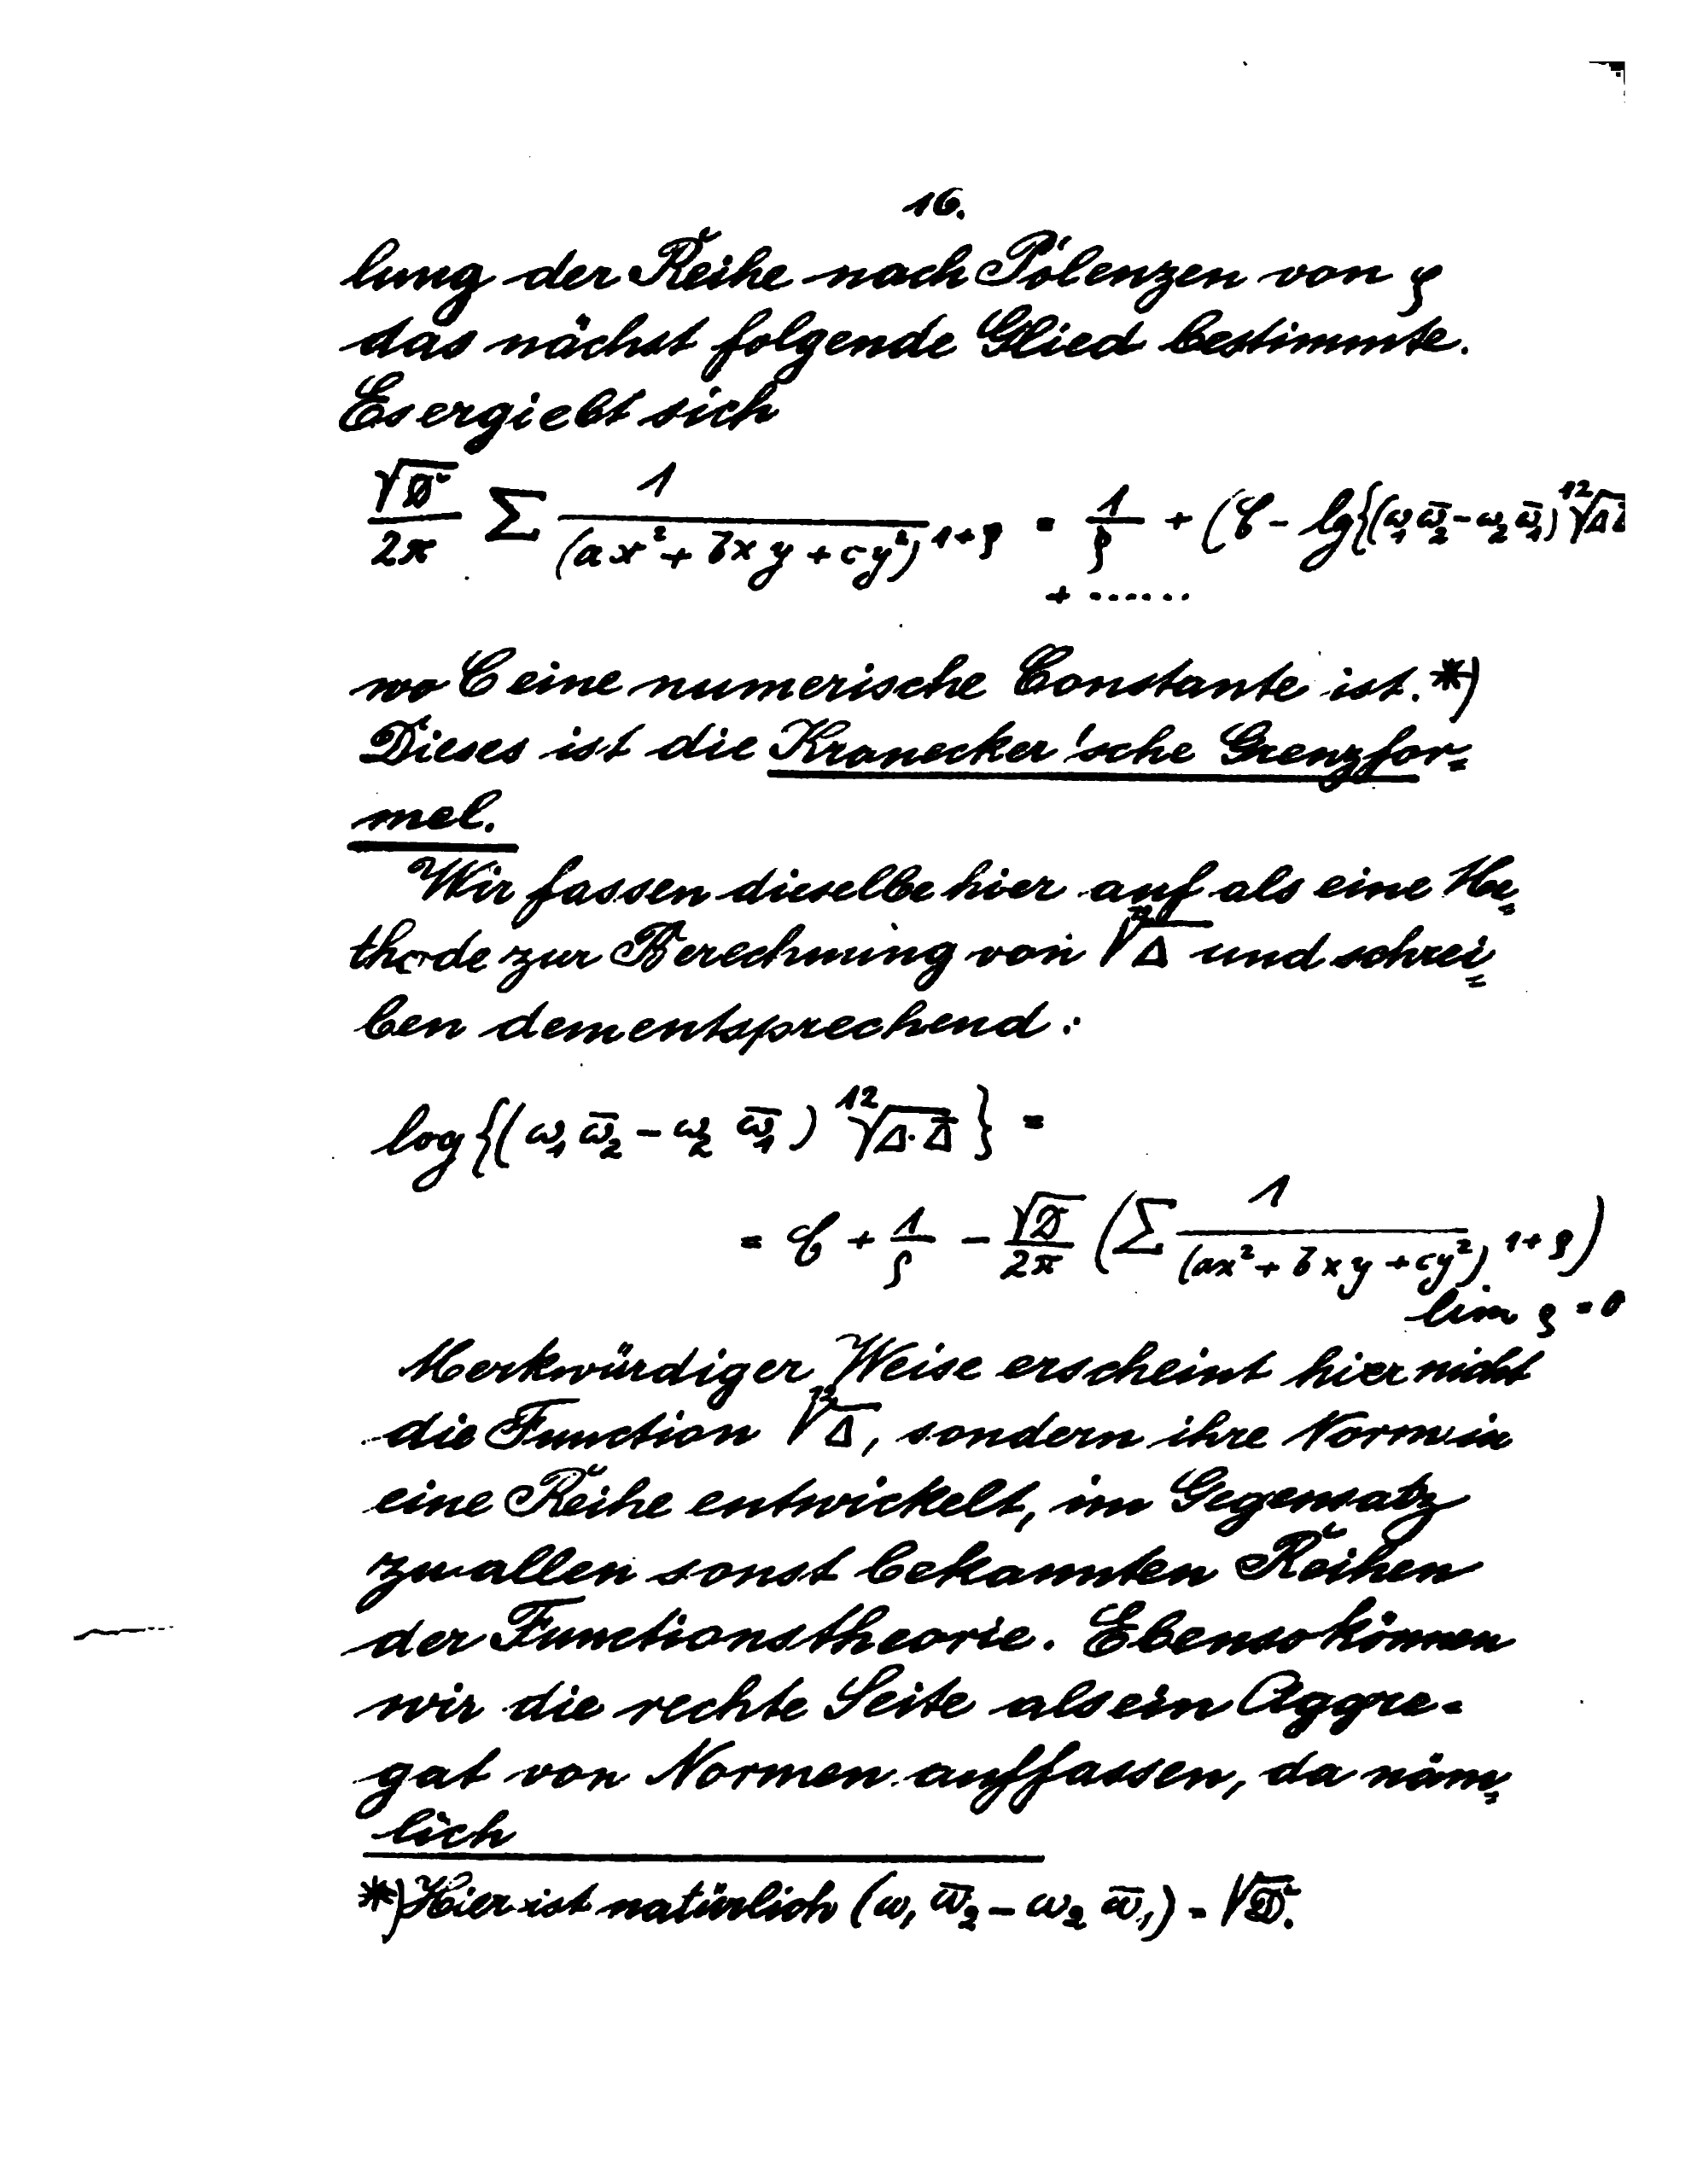 16.
lung der Reihe nach Potenzen von ρ
das nächst folgende Glied bestimmte.
Es ergiebt sich
√D/2π Σ 1/(ax²+bxy+cy²)^{1+ρ} = 1/ρ + (C - lg{(ω₁ω̄₂-ω₂ω̄₁) ¹²√ΔΔ̄
+ ......
wo C eine numerische Constante ist.*)
Dieses ist die Kronecker'sche Grenzfor=
mel.
Wir fassen dieselbe hier auf als eine Me=
thode zur Berechnung von ¹²√Δ und schrei=
ben dementsprechend:
log{(ω₁ω̄₂-ω₂ω̄₁) ¹²√Δ·Δ̄} =
= C + 1/ρ - √D/2π (Σ 1/(ax²+bxy+cy²)^{1+ρ})
lim ρ=0
Merkwürdiger Weise erscheint hier nicht
die Function ¹²√Δ, sondern ihre Norm in
eine Reihe entwickelt, im Gegensatz
zu allen sonst bekannten Reihen
der Functionstheorie. Ebenso können
wir die rechte Seite als ein Aggre-
gat von Normen auffassen, da näm=
lich
*) Hier ist natürlich (ω₁ω̄₂-ω₂ω̄₁) = √D.